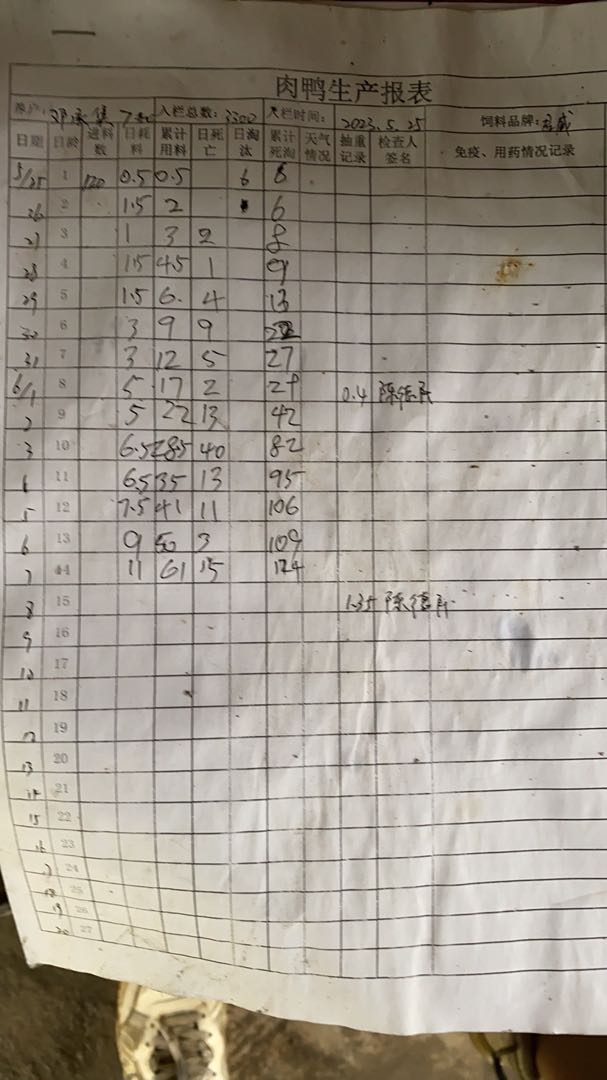 肉鸭生产报表
养户: 入栏总数: 3300 入栏时间: 2023.5.25 饲料品牌:
日期 日龄 进料数 日耗料 累计用料 日死亡 日淘汰 累计死淘 天气情况 抽重记录 检查人签名 免疫、用药情况记录
5/25 1 120 0.5 0.5 6 6
26 2 1.5 2 6
27 3 1 3 2 8
28 4 1.5 4.5 1 9
29 5 1.5 6. 4 13
30 6 3 9 9 22
31 7 3 12 5 27
6/1 8 5 17 2 29 0.4 陈德
2 9 5 22 13 42
3 10 6.5 28.5 40 82
11 6.5 35 13 95
5 12 7.5 41 11 106
6 13 9 50 3 109
7 14 11 61 15 124
8 15 1.35 陈德
9 16
10 17
11 18
12 19
13 20
14 21
15 22
16 23
17 24
18 25
19 26
20 27